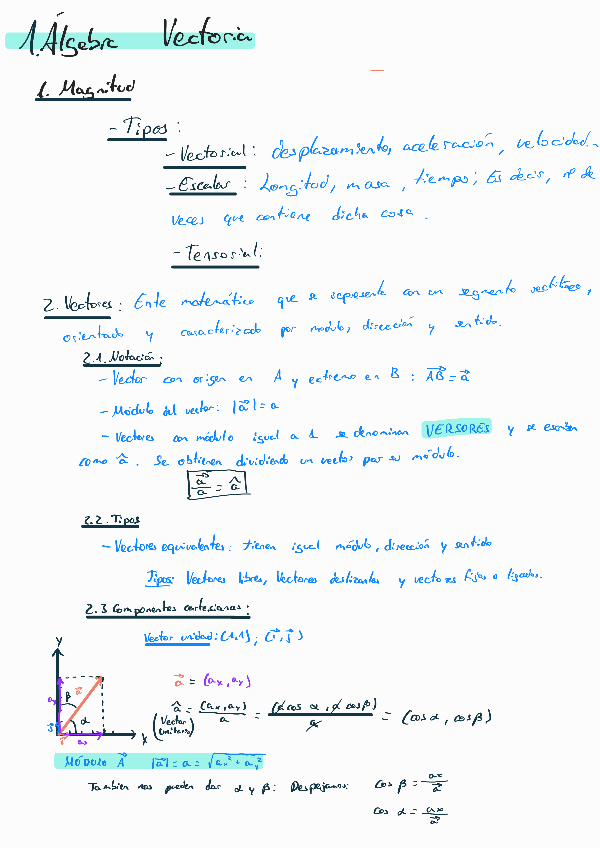 1. Álgebra Vectoria
1. Magnitud
- Tipos:
- Vectorial: desplazamiento, aceleración, velocidad.
- Escalar: Longitud, masa, tiempo; Es decir, nº de
veces que contiene dicha cosa.
- Tensorial:
2. Vectores: Ente matemático que se representa con un segmento rectilíneo,
orientado y caracterizado por modulo, dirección y sentido.
2.1. Notación:
- Vector con origen en A y extremo en B: \overrightarrow{AB} = \vec{a}
- Módulo del vector: |\vec{a}| = a
- Vectores con módulo igual a 1 se denominan VERSORES y se escriben
como â. Se obtienen dividiendo un vector por su módulo.
\frac{\vec{a}}{a} = â
2.2. Tipos
- Vectores equivalentes: tienen igual módulo, dirección y sentido
Tipos: Vectores libres, Vectores deslizantes y vectores fijos o ligados.
2.3 Componentes cartesianas:
Vector unidad: (1,1); (\vec{i}, \vec{j})
y
\vec{a} = (ax, ay)
ay β \vec{a}
α
ax x
â = \frac{(ax, ay)}{a} = \frac{(a cos α, a cos β)}{a} = (cos α, cos β)
(Vector
unitario)
MÓDULO \vec{A} |\vec{a}| = a = \sqrt{ax² + ay²}
Tambien nos pueden dar α y β: Despejamos: cos β = \frac{ax}{\vec{a}}
cos α = \frac{ax}{\vec{a}}